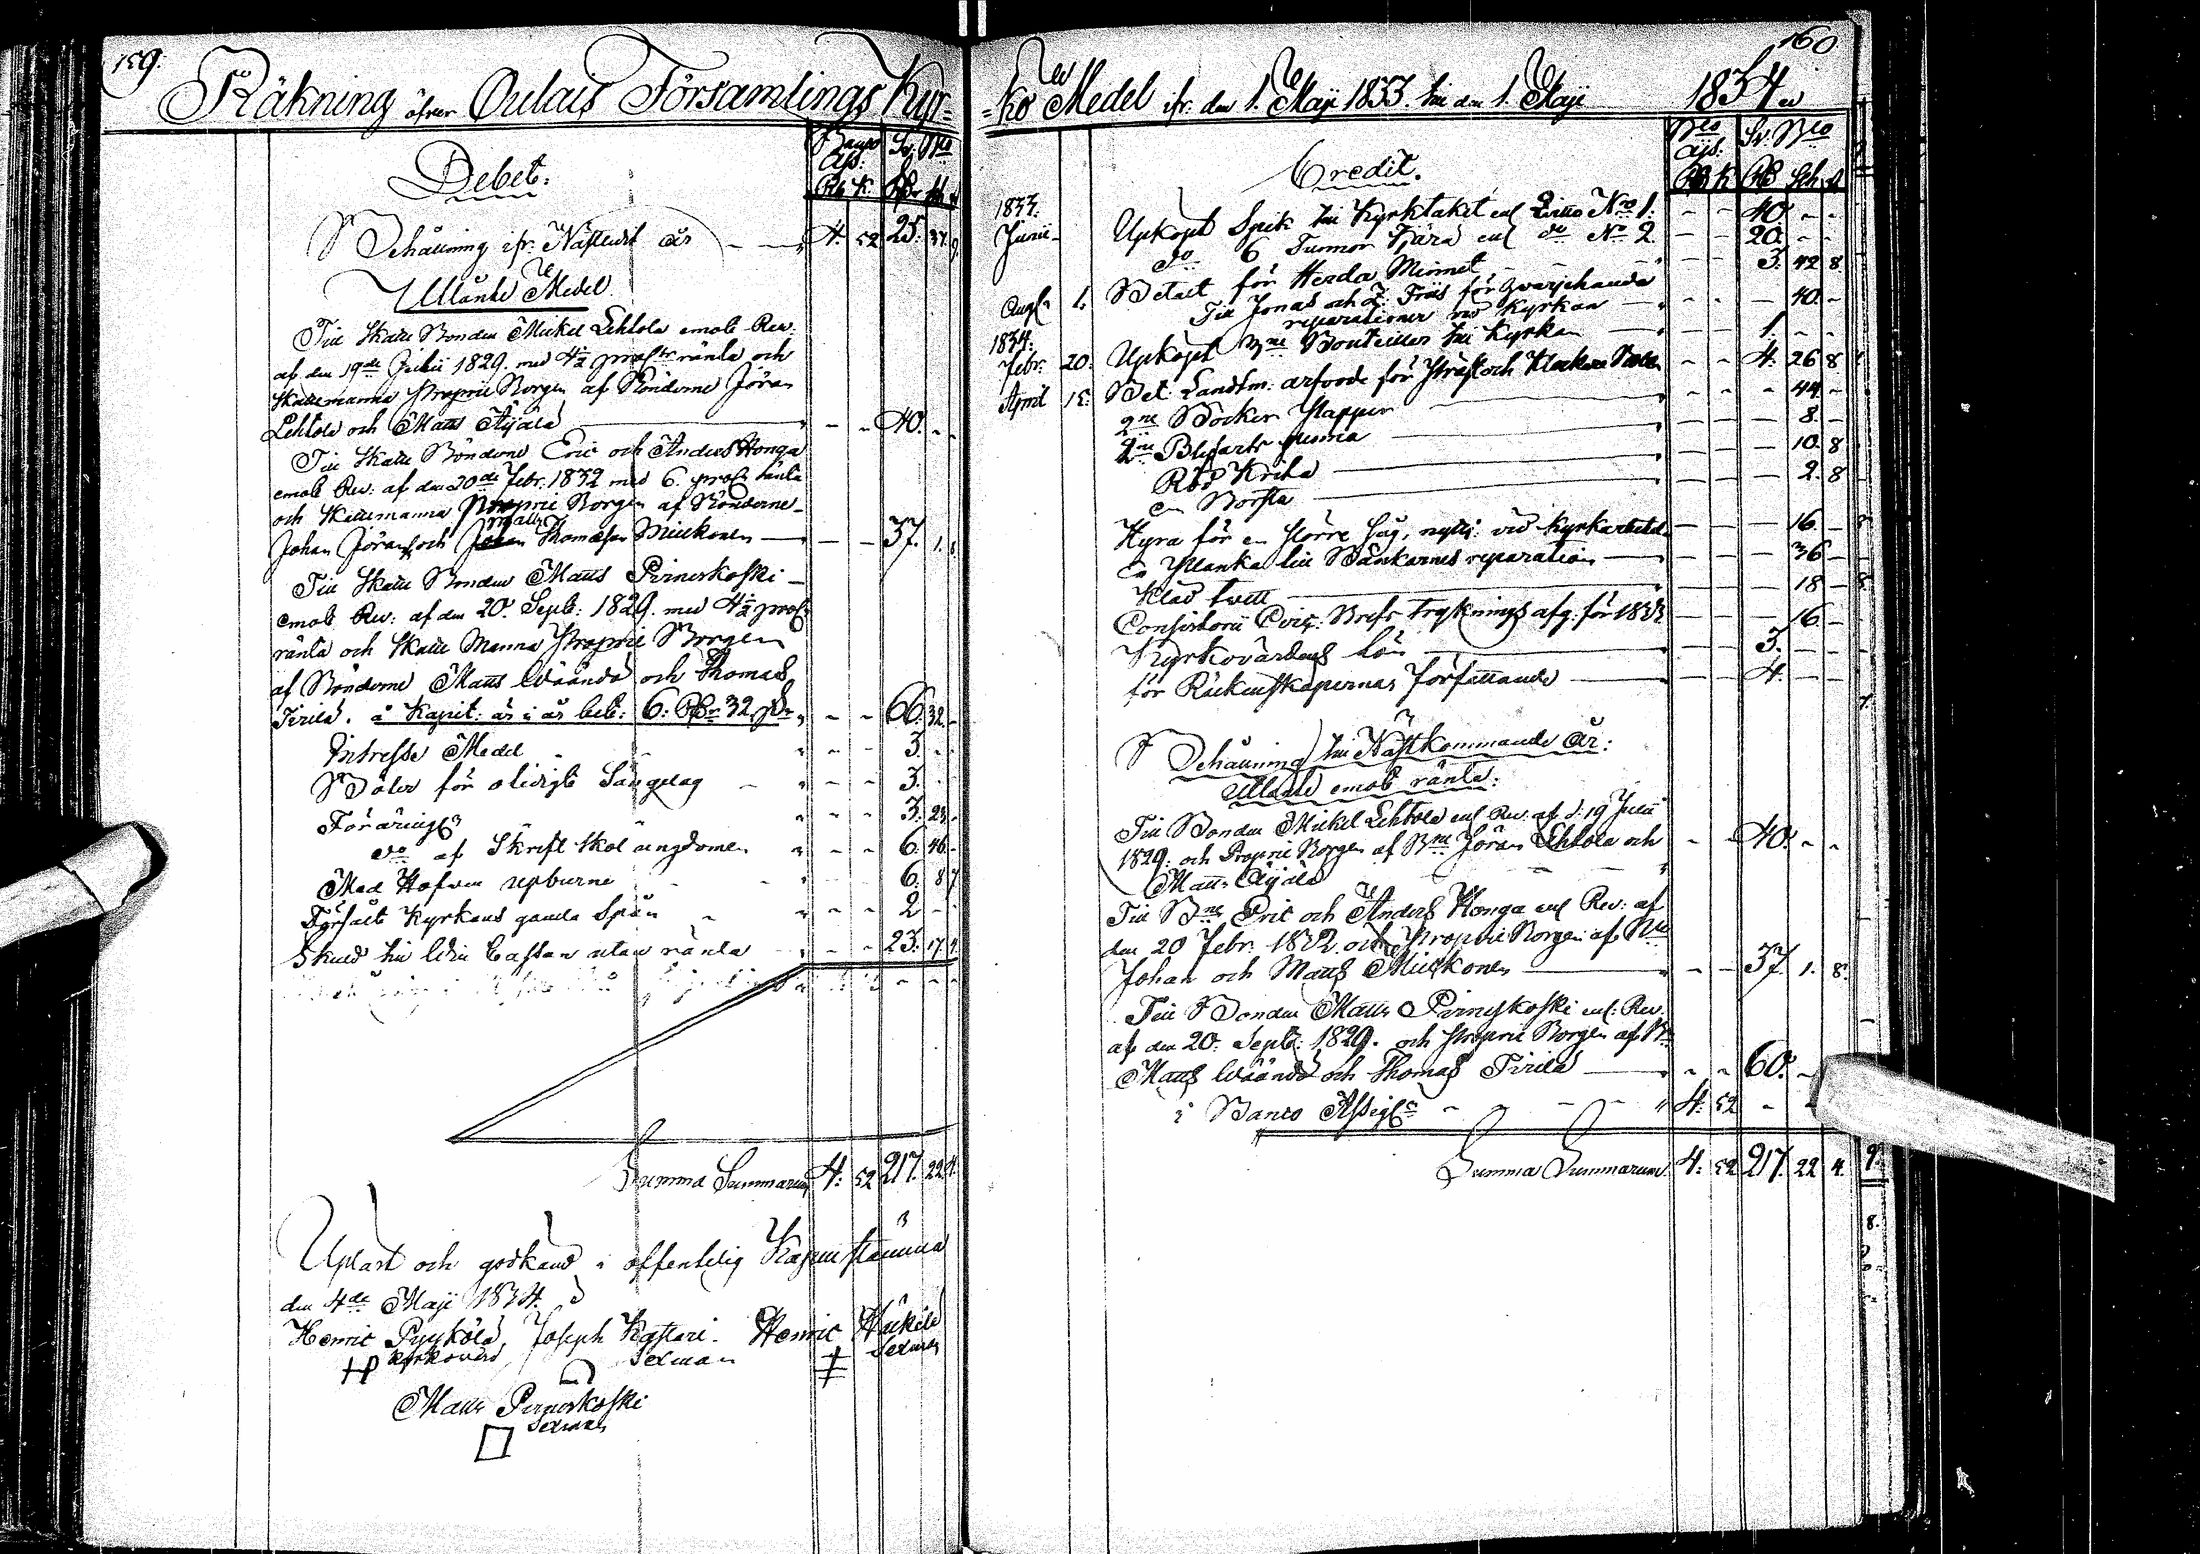 159.
Räkning öfver Oulais Församlings Kyr=
Debet.
Banco Ass: Sv. Bco
Rb K. Rdr sk
Behållning ifr. Näst last år 4. 52 25. 37. 9
Utlånte Medel
Till Skatte Bonden Mickel Lehtola emot Rev:
af den 19de Julii 1829. med 4½ procts ränta och
Skattemanna Proprie Borgen af Bönderne Jöran
Lehtola och Matts Äijälä - - 40. - -
Till Skatte Bönderne Eric och Anders Honga
emot Rev: af den 20de Febr. 1832 med 6. proct ränta
och Skattemanna Proprie Borgen af Bönderne
Matts
Johan Jöransson och Thomasson Mieskonen - - 37. 1. 8
Till Skatte Bonden Matts Pirneskoski
emot Rev: af den 20. Septb: 1829. med 4½ proct
ränta och Skatte Manna Proprie Borgen
af Bönderne Matts Wäänä och Thomas
Tirilä. å Kapit: är i år bet: 6. Rdr 32 sk - - 66. 32. -
Intresse Medel - - 3. -
Böter för olidigt Sängelag - - 3. -
Föräringr - - 3. 23.
do af Skrift Skol ungdomen - - 6. 46. -
Med Hofven upburne - - 6. 8 7
Försålt Kyrkans gamla Spån - - 2 -
Skuld till Cassan utan ränta - - 23. 17. 4.
Summa Summarum 4. 52 217. 22. 4.
Upläst och godkänd i offentelig Kyrkostämma
den 4de Maji 1834.
Henric Pyykölä, Joseph Kastari. Henric Häikiö
Kyrkovärd Sexman Sexman
Matts Pirneskoski
Sexman
160
=ko Medel ifr. den 1. Maji 1833. till den 1. Maji 1834
Credit.
Bco Ass: Sv. Bco
RB K RB Sch
1833.
Junii Upköpt Spik till Kyrktaket enl Qvitto No 1. - - 40. - -
do 6 Tunnor Tjära enl do No 2. - - 20. - -
Betalt för Herda Minnet - - 3. 42 8
Augs 1. Till Jonas och Z: Friis för hvarjehanda
reparationer vid Kyrkan - - - 40. -
1834.
Febr. 20. Upköpt 3ne Bouteiller till Kyrkan - - 1. - -
April 15. Bet. Landtm: arfvode för Präst och Klockare - - 4. 26 8
2ne Böcker Papper - - - 44. -
2ne Blyfarts penna - - - 8. -
Röd Krita - - - 10. 8
en Borsta - - - 2. 8
Hyra för en större Såg, nyttj: vid Kyrkarbetet - - - 16. -
En Planka till Bänkarnes reparation - - - 36 -
Kläd tvätt - - - 18 -
Consistorii Circ: Brefs tryknings afg. för 1833 - - - 16. -
Kyrkovärdens lön - - 3. - -
för Räkenskapernas författande - - 4. - -
Behållning till Nästkommande år:
Utlånte emot ränta:
Till Bonden Mickel Lehtola enl Rev. af d. 19 Julii
1829. och Proprie Borgen af Bne Jöran Lehtola och - 40. - -
Matts Äijälä
Till Bne Eric och Anders Honga enl Rev: af
den 20 Febr. 1832. och Proprie Borgen af Bne
Johan och Matts Mieskonen - - 37. 1. 8.
Till Bonden Matts Pirneskoski enl: Rev.
af den 20. Septb. 1829. och Proprie Borgen af Bne
Matts Wäänä och Thomas Tirilä - - 60. -
i Banco Assigr 4. 52 - -
Summa Summarum 4. 52 217. 22 4.